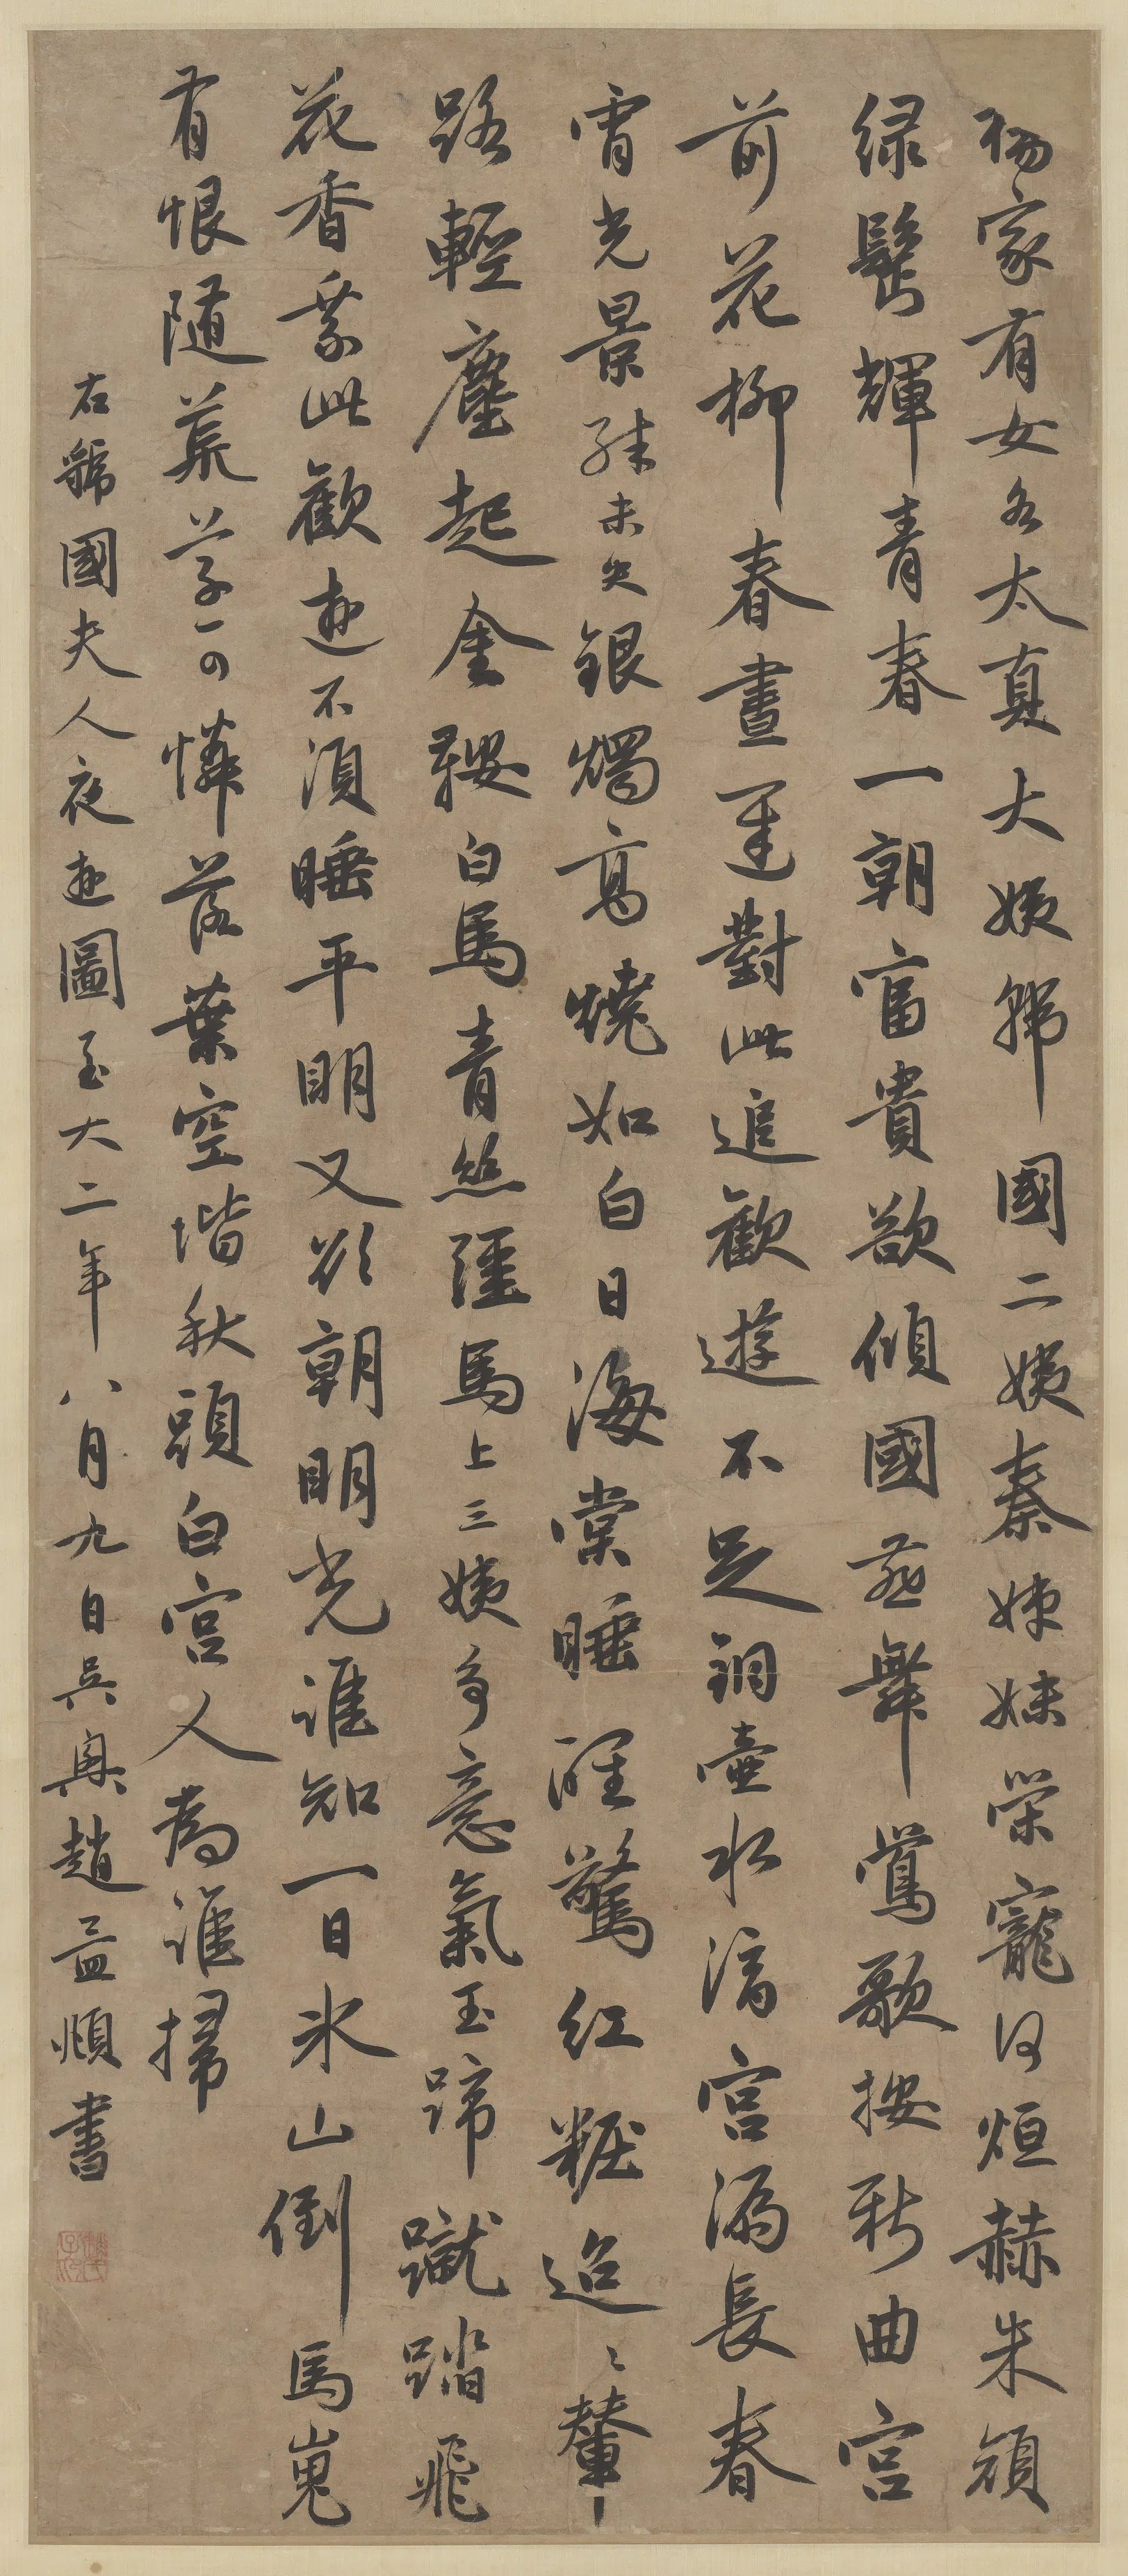 楊家有女名太真大姨韓國二姨秦姊妹榮寵何烜赫朱顔
緑鬢輝青春一朝富貴欲傾國燕舞鶯歌按新曲宫
前花柳春晝遲對此追歡遊不足銅壺水滴宫漏長春
宵光景殊未央銀燭高燒如白日海棠睡醒驚紅粧迢〻輦
路輕塵起金鞍白馬青絲韁馬上三姨多意氣玉蹄蹴踏飛
花香乘此歡遊不須睡平明又欲朝明光誰知一日冰山倒馬嵬
有恨隨荒草可憐落葉空堦秋頭白宫人為誰掃
右虢國夫人夜遊圖至大二年八月九日吳興趙孟頫書
趙氏子昂